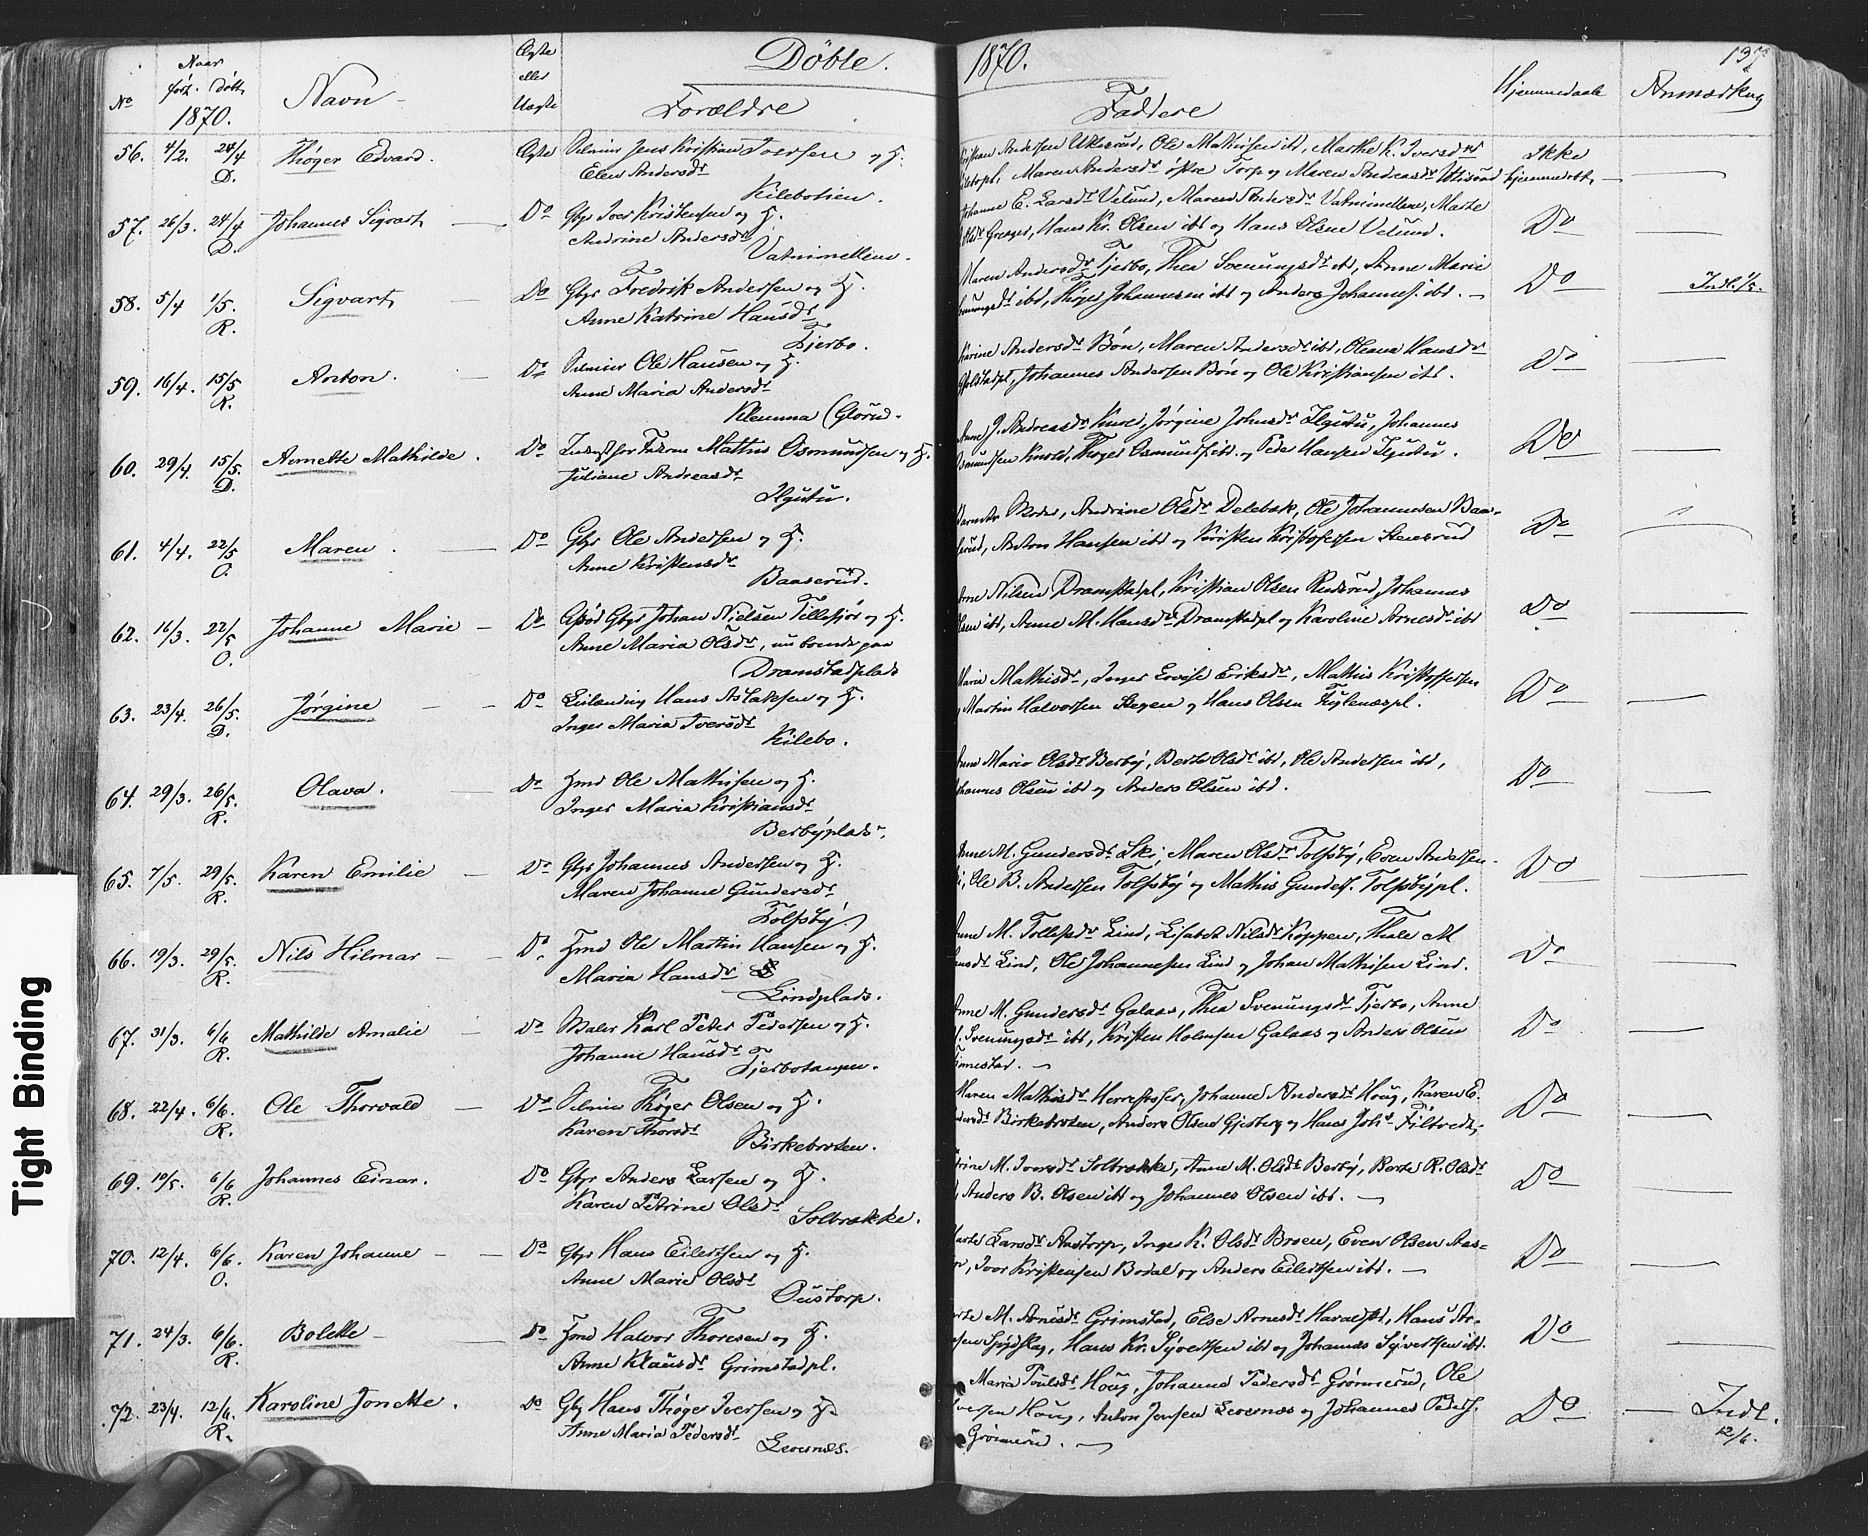 Döbte. 1870. 137
No
Naar
født. Døbt.
1870.
Navn
Ægte
eller
Uægte
Forældre
Faddere
Hjemmedøbte
Anmærkng
56. 4/2. 24/4 D. Thøger Edvard. Ægte Jens Kristian Iversen og H.
Elen Andersdr
Kilebotien.
Kristian Andersen Utlerud, Ole Mathisen ibd, Marthe K. Iversdr
Maren Andersdr østre Torp og Maren Andreasdr
Ikke
hjemmedøbt
57. 26/3. 24/4 D. Johannes Sigvart Do Gbr Iver Kristensen og H.
Andrine Andersdr
Vatnimellem.
Johanne E. Larsdr Velund, Maren Andersdr Vatnimellem, Marte
Olsdr Greager, Hans Kr. Olsen ibd og Hans Olsen Velund.
Do
58. 5/4 1/5. R. Sigvart Do Gbr Fredrik Andersen og H.
Anne Katrine Hansdr
Tjerbo.
Maren Andersdr Tjerbo, Thea Svenungsdr ibd, Anne Marie
ibd, Thøger Johannesen ibd og Anders Johannes. ibd.
Do Indl. 1/5.
59. 16/4. 15/5 R. Anton. Do Ole Hansen og H.
Anne Maria Andersdr
Klemma (Glorud.
Karine Andersdr Bøn, Maren Andersdr ibd, Oleana Hansdr
Johannes Andersen Bøn og Ole Kristiansen ibd.
Do
60. 29/4. 15/5. D. Annette Mathilde. Do Mathis Osmundsen og H.
Juliane Andreasdr
Ilgutu.
Anne J. Andreasdr Jørgine Johnsdr Ilgutu, Johannes
Osmundsen Knold, Thøger Osmunds. ibd. og Peder Hansen Ilgutu.
Do
61. 4/4. 22/5 O. Maren. Do Gbr Ole Andersen og H.
Anne Kristensdr
Baaserud.
Barnets Moder, Andrine Olsdr Delebæk, Ole Johannesen Baa-
serud, Anton Hansen ibd og Kristen Kristofersen Stensrud
Do
62. 16/3. 22/5 O. Johanne Marie Do Gbr Johan Nielsen Tillesjør og H.
Anne Maria Olsdr, nu boende paa
Dramstadplads
Arne Nilsen Dramstadpl, Kristian Olsen Johannes
Olsen ibd, Anne M. Hansdr Dramstadpl og Karoline Arnesdr ibd
Do
63. 23/4. 26/5. D. Jørgine Do Hans Aslaksen og H.
Inger Maria Iversdr
Kilebo.
Maria Mathisdr, Inger Lovise Eriksdr, Mathis Kristoffersen
Martin Halvorsen Stegen og Hans Olsen Fuglenæspl.
Do
64. 29/3. 26/5. R. Olava. Do Hmd Ole Mathisen og H.
Inger Maria Kristiansdr
Berbyplads.
Anne Maria Olsdr Berby, Berte Olsdr ibd, Ole Andersen ibd,
Johannes Olsen ibd og Anders Olsen ibd.
Do
65. 7/5. 29/5. R. Karen Emilie Do Gbr Johannes Andersen og H.
Maren Johanne Gundersdr
Tolfsby.
Anne M. Gundersdr Ski, Maren Olsdr Tolfsby, Even Andersen
Ole B. Andersen Tolfsby og Mathis Gunders. Tolfsbypl.
Do
66. 19/3. 29/5. R. Nils Hilmar Do. Hmd Ole Martin Hansen og H.
Maria Hansdr
Lindplads.
Anne M. Tollefsdr Lind, Lisabet Nilsdr Koppen, Thale M
Lind, Ole Johannesen Lind og Johan Mathisen Lind.
Do
67. 31/3. 6/6 R. Mathilde Amalie Do Maler Karl Peter Pedersen og H.
Johanne Hansdr
Tjerbotangen.
Anne M. Gundersdr Galaas, Thea Svenungsdr Tjerbo, Anne
M. Svenungsdr ibd, Kristen Holmsen Galaas og Anders Olsen
Do
68. 22/4. 6/6. R. Ole Thorvald Do Thøger Olsen og H.
Karen Thorsdr
Birkebroten.
Maren Mathisdr Johanne Andersdr Houg, Karen E.
Birkebroten, Anders Olsen Gjesberg og Hans Johs
Do
69. 10/5. 6/6 R. Johannes Einar. Do Gbr Anders Larsen og H.
Karen Petrine Olsd.
Solbrække.
M. Iversdr Solbrække, Anne M. Olsdr Berby, Berte R. Olsdr
Anders B. Olsen ibd og Johannes Olsen ibd.
Do
70. 12/4. 6/6. O. Karen Johanne Do Gbr Hans Eilertsen og H.
Anne Marie Olsdr
Oustorp.
Marte Larsdr Aastorp, Inger K. Olsdr Broen, Even Olsen Aas-
Iver Kristensen Bodal og Anders Eilertsen ibd.
Do
71. 24/3. 6/6. R. Bolette Do Hmd Halvor Thoresen og H.
Anne Klausdr Grimstadpl.
M. Arnesdr Grimstad, Else Arnesdr Hans Ar-
Hans Kr. Syvertsen ibd og Johannes Syvertsen ibd.
Do
72. 23/4. 12/6. R. Karoline Jonette. Do Gbr Hans Thøger Iversen og H.
Anne Maria Pedersdr
Levernæs.
Maria Poulsdr Houg, Johanne Pedersdr Grønnerud, Ole
Iversen Houg, Anton Jensen Levernæs og Johannes Peders.
Grønnerud.
Do Indl.
12/6.
Tight Binding